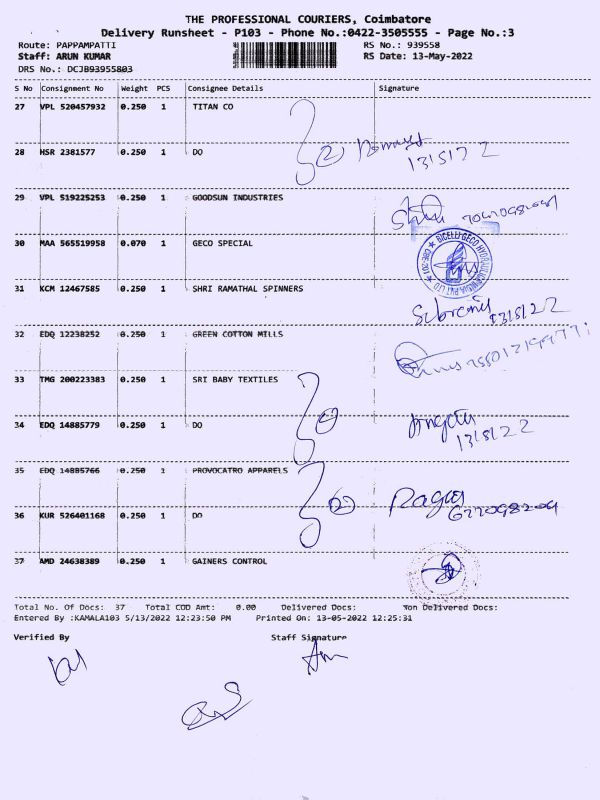 THE PROFESSIONAL COURIERS, Coimbatore
Delivery Runsheet - P103 - Phone No.:0422-3505555 - Page No.:3
Route: PAPPAMPATTI RS No.: 939558
Staff: ARUN KUMAR RS Date: 13-May-2022
DRS No.: DCJB93955803
S No Consignment No Weight PCS Consignee Details Signature
27 VPL 520457932 0.250 1 TITAN CO
28 HSR 2381577 0.250 1 DO
2 13/5/22
29 VPL 519225253 0.250 1 GOODSUN INDUSTRIES
30 MAA 565519958 0.070 1 GECO SPECIAL
31 KCM 12467585 0.250 1 SHRI RAMATHAL SPINNERS
13/5/22
32 EDQ 12238252 0.250 1 GREEN COTTON MILLS
33 TMG 200223383 0.250 1 SRI BABY TEXTILES
34 EDQ 14885779 0.250 1 DO
13/5/22
35 EDQ 14885766 0.250 1 PROVOCATRO APPARELS
2
36 KUR 526401168 0.250 1 DO
37 AMD 24638389 0.250 1 GAINERS CONTROL
Total No. Of Docs: 37 Total COD Amt: 0.00 Delivered Docs: Non Delivered Docs:
Entered By :KAMALA103 5/13/2022 12:23:50 PM Printed On: 13-05-2022 12:25:31
Verified By Staff Signature